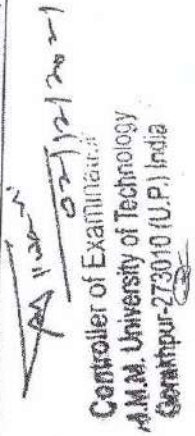 02/12/2021
Controller of Examination
M.M.M. University of Technology
Gorakhpur-273010 (U.P.) India